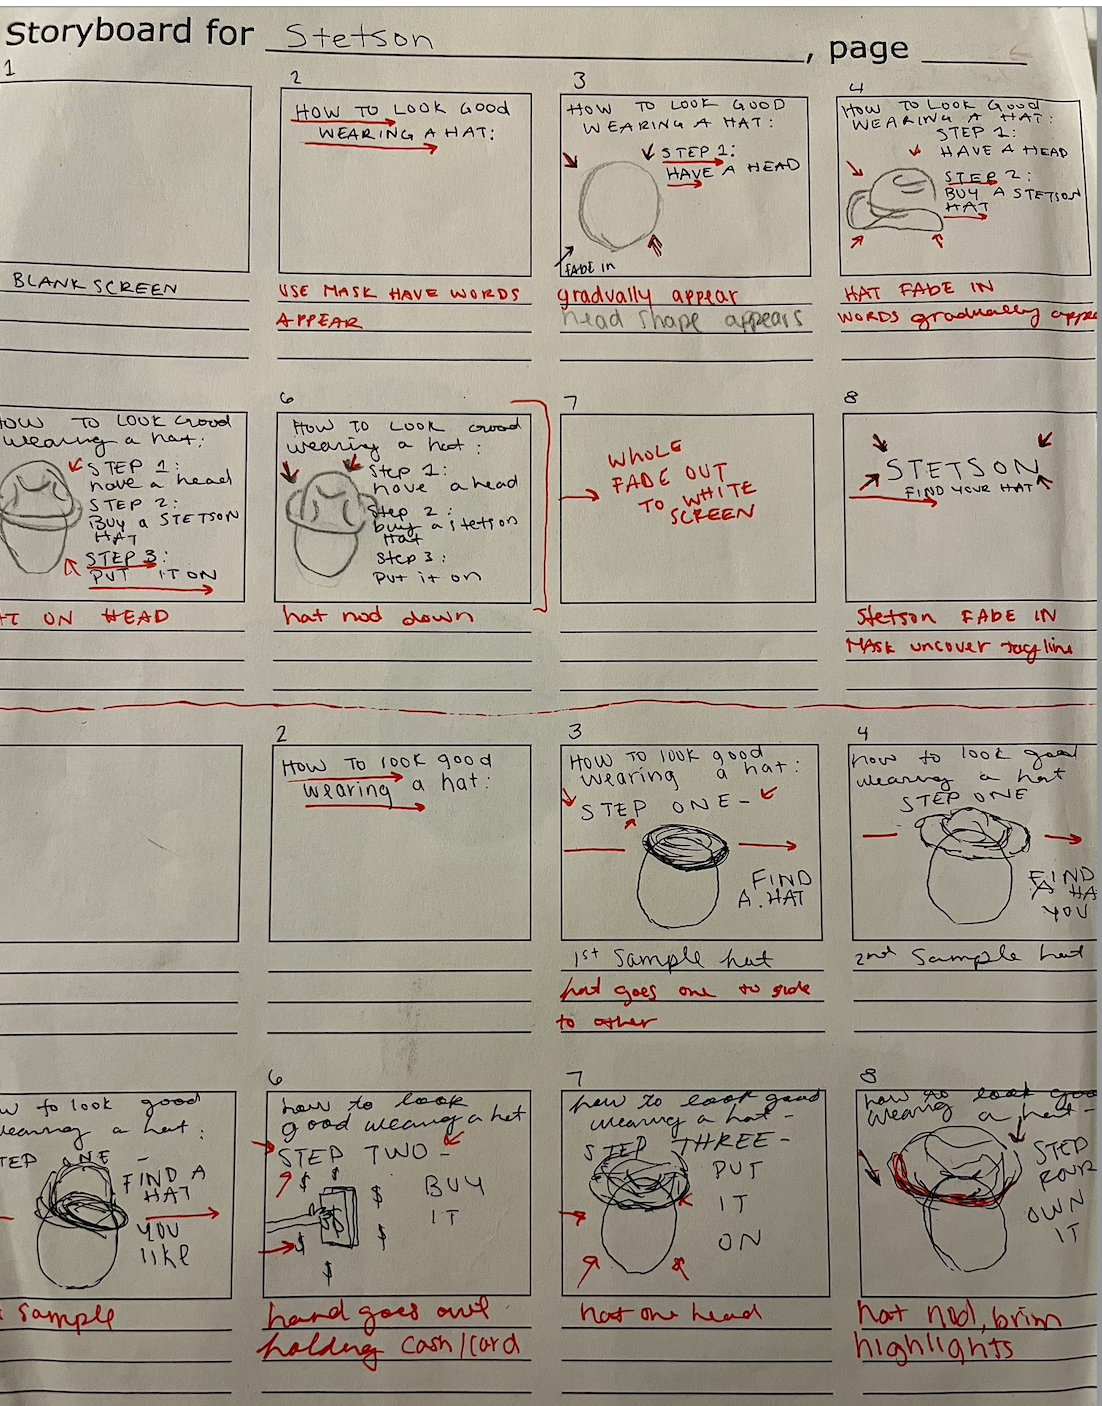 Storyboard for Stetson, page
1
BLANK SCREEN
2
HOW TO LOOK GOOD
WEARING A HAT:
USE MASK HAVE WORDS
APPEAR
3
HOW TO LOOK GOOD
WEARING A HAT:
STEP 1:
HAVE A HEAD
FADE IN
gradually appear
head shape appears
4
HOW TO LOOK GOOD
WEARING A HAT:
STEP 1:
HAVE A HEAD
STEP 2:
BUY A STETSON
HAT
HAT FADE IN
WORDS gradually appe
HOW TO LOOK Good
wearing a hat:
STEP 1:
have a head
STEP 2:
BUY a STETSON
HAT
STEP 3:
PUT IT ON
ON HEAD
6
HOW TO LOOK Good
wearing a hat:
Step 1:
have a head
Step 2:
buy a stetson
Hat
Step 3:
put it on
hat nod down
7
WHOLE
FADE OUT
TO WHITE
SCREEN
8
STETSON
FIND YOUR HAT
Stetson FADE IN
MASK uncover tagline
2
HOW TO look good
wearing a hat:
3
HOW TO look good
wearing a hat:
STEP ONE -
FIND
A HAT
1st Sample hat
hat goes one to side
to other
4
how to look good
wearing a hat
STEP ONE
FIND
A HA
YOU
2nd Sample hat
w to look good
wearing a hat:
TEP ONE -
FIND A
HAT
YOU
like
Sample
6
how to look
good wearing a hat
STEP TWO -
$ $
BUY
$
IT
$
$
$
$
hand goes out
holding cash/card
7
how to look good
wearing a hat -
STEP THREE -
PUT
IT
ON
hat one head
8
how to look goo
wearing a hat -
STEP
FOUR
OWN
IT
hat nod, brim
highlights